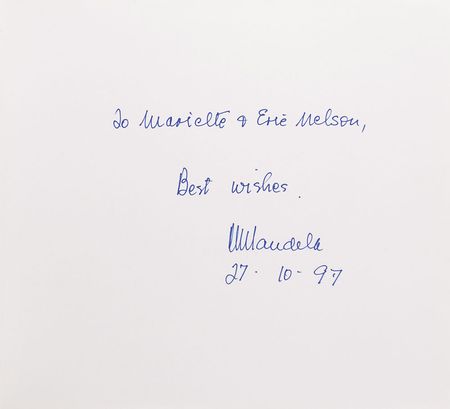 To Marielte & Eric Nelson,
Best wishes.
NMandela
27. 10 - 97